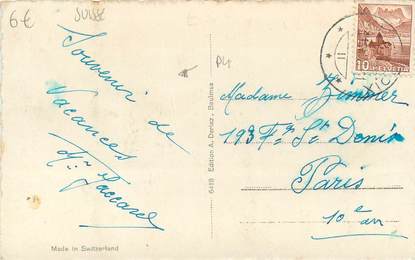 6€
SUISSE
Souvenir de
Vacances
Made in Switzerland
6418 Edition A. Deriaz, Baulmes
10
HELVETIA
Madame Zimmer
193 Fg St Denis
Paris
10e arr